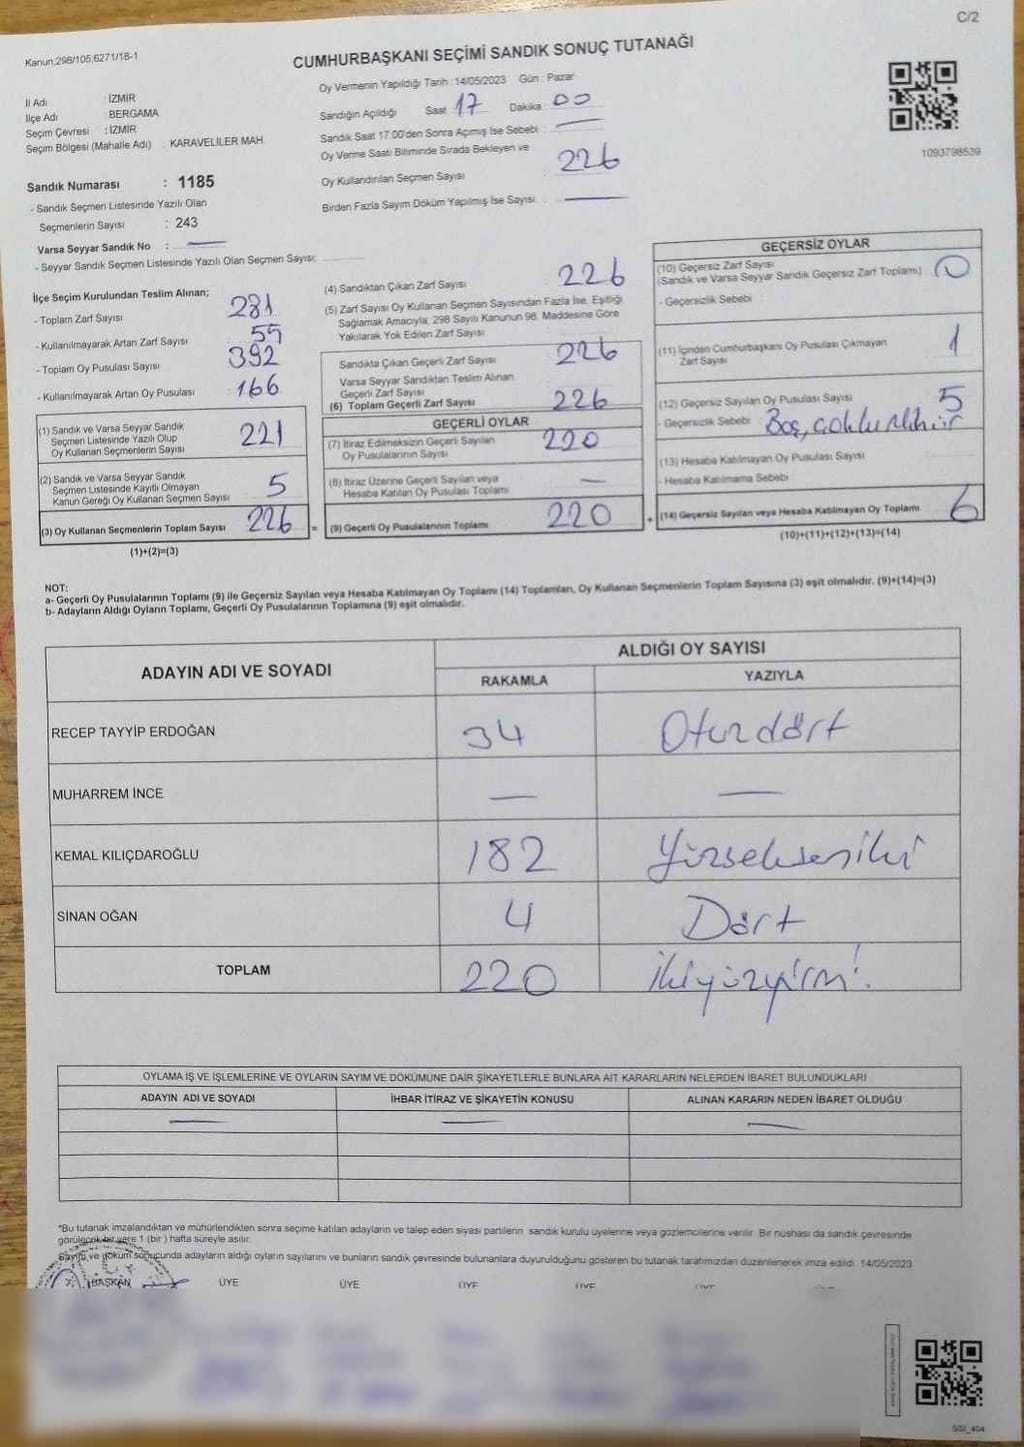 C/2
Kanun,298/105,6271/18-1
CUMHURBAŞKANI SEÇİMİ SANDIK SONUÇ TUTANAĞI
İl Adı : İZMİR
İlçe Adı : BERGAMA
Seçim Çevresi : İZMİR
Seçim Bölgesi (Mahalle Adı) : KARAVELİLER MAH
Sandık Numarası : 1185
- Sandık Seçmen Listesinde Yazılı Olan
Seçmenlerin Sayısı : 243
Varsa Seyyar Sandık No : —
- Seyyar Sandık Seçmen Listesinde Yazılı Olan Seçmen Sayısı:
Oy Vermenin Yapıldığı Tarih : 14/05/2023 Gün : Pazar
Sandığın Açıldığı Saat 17 Dakika 00
Sandık Saat 17:00'den Sonra Açımış İse Sebebi : —
Oy Verme Saati Bitiminde Sırada Bekleyen ve
Oy Kullandırılan Seçmen Sayısı : 226
Birden Fazla Sayım Döküm Yapılmış İse Sayısı : —
1093798639
İlçe Seçim Kurulundan Teslim Alınan;
- Toplam Zarf Sayısı 281
- Kullanılmayarak Artan Zarf Sayısı 55
- Toplam Oy Pusulası Sayısı 392
- Kullanılmayarak Artan Oy Pusulası 166
(1) Sandık ve Varsa Seyyar Sandık
Seçmen Listesinde Yazılı Olup
Oy Kullanan Seçmenlerin Sayısı 221
(2) Sandık ve Varsa Seyyar Sandık
Seçmen Listesinde Kayıtlı Olmayan
Kanun Gereği Oy Kullanan Seçmen Sayısı 5
(3) Oy Kullanan Seçmenlerin Toplam Sayısı 226 =
(1)+(2)=(3)
(4) Sandıktan Çıkan Zarf Sayısı 226
(5) Zarf Sayısı Oy Kullanan Seçmen Sayısından Fazla İse, Eşitliği
Sağlamak Amacıyla, 298 Sayılı Kanunun 98. Maddesine Göre
Yakılarak Yok Edilen Zarf Sayısı
Sandıkta Çıkan Geçerli Zarf Sayısı 226
Varsa Seyyar Sandıktan Teslim Alınan
Geçerli Zarf Sayısı
(6) Toplam Geçerli Zarf Sayısı 226
GEÇERLİ OYLAR
(7) İtiraz Edilmeksizin Geçerli Sayılan
Oy Pusulalarının Sayısı 220
(8) İtiraz Üzerine Geçerli Sayılan veya
Hesaba Katılan Oy Pusulası Toplamı —
(9) Geçerli Oy Pusulalarının Toplamı 220 +
GEÇERSİZ OYLAR
(10) Geçersiz Zarf Sayısı
(Sandık ve Varsa Seyyar Sandık Geçersiz Zarf Toplamı) 0
- Geçersizlik Sebebi :
(11) İçinden Cumhurbaşkanı Oy Pusulası Çıkmayan
Zarf Sayısı 1
(12) Geçersiz Sayılan Oy Pusulası Sayısı 5
- Geçersizlik Sebebi : Boş,
(13) Hesaba Katılmayan Oy Pusulası Sayısı
- Hesaba Katılmama Sebebi
(14) Geçersiz Sayılan veya Hesaba Katılmayan Oy Toplamı 6
(10)+(11)+(12)+(13)=(14)
NOT:
a- Geçerli Oy Pusulalarının Toplamı (9) ile Geçersiz Sayılan veya Hesaba Katılmayan Oy Toplamı (14) Toplamları, Oy Kullanan Seçmenlerin Toplam Sayısına (3) eşit olmalıdır. (9)+(14)=(3)
b- Adayların Aldığı Oyların Toplamı, Geçerli Oy Pusulalarının Toplamına (9) eşit olmalıdır.
ADAYIN ADI VE SOYADI ALDIĞI OY SAYISI
RAKAMLA YAZIYLA
RECEP TAYYİP ERDOĞAN 34 Otuzdört
MUHARREM İNCE — —
KEMAL KILIÇDAROĞLU 182 Yüzsekseniki
SİNAN OĞAN 4 Dört
TOPLAM 220 İkiyüzyirmi
OYLAMA İŞ VE İŞLEMLERİNE VE OYLARIN SAYIM VE DÖKÜMÜNE DAİR ŞİKAYETLERLE BUNLARA AİT KARARLARIN NELERDEN İBARET BULUNDUKLARI
ADAYIN ADI VE SOYADI İHBAR İTİRAZ VE ŞİKAYETİN KONUSU ALINAN KARARIN NEDEN İBARET OLDUĞU
— — —
*Bu tutanak imzalandıktan ve mühürlendikten sonra seçime katılan adayların ve talep eden siyasi partilerin sandık kurulu üyelerine veya gözlemcilerine verilir. Bir nüshası da sandık çevresinde
görülecek bir yere 1 (bir) hafta süreyle asılır.
Sayım ve döküm sonucunda adayların aldığı oyların sayılarını ve bunların sandık çevresinde bulunanlara duyurulduğunu gösteren bu tutanak tarafımızdan düzenlenerek imza edildi. 14/05/2023
BAŞKAN ÜYE ÜYE ÜYE ÜYE ÜYE
SSI_404